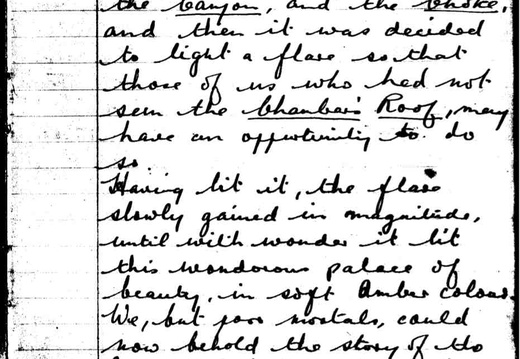 the Canyon, and the Choke,
and then it was decided
to light a flare so that
those of us who had not
seen the Chamber's Roof, may
have an opportunity to do
so.
Having lit it, the flare
slowly gained in magnitude,
until with wonder it lit
this wonderous palace of
beauty, in soft Amber colour.
We, but poor mortals, could
now behold the story of the